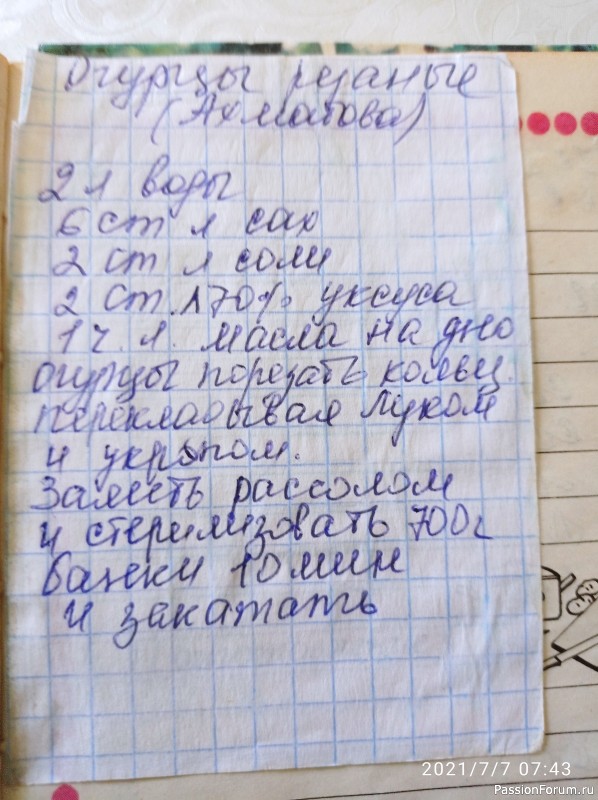 Огурцы резаные
(Ахматова)
2 л воды
6 ст л сах
2 ст л соли
2 ст.л 70% уксуса
1 ч. л. масла на дно
огурцы порезать кольц.
перекладывая луком
и укропом.
Залить рассолом
и стерилизовать 700г
банки 10 мин
и закатать
2021/7/7 07:43
PassionForum.ru